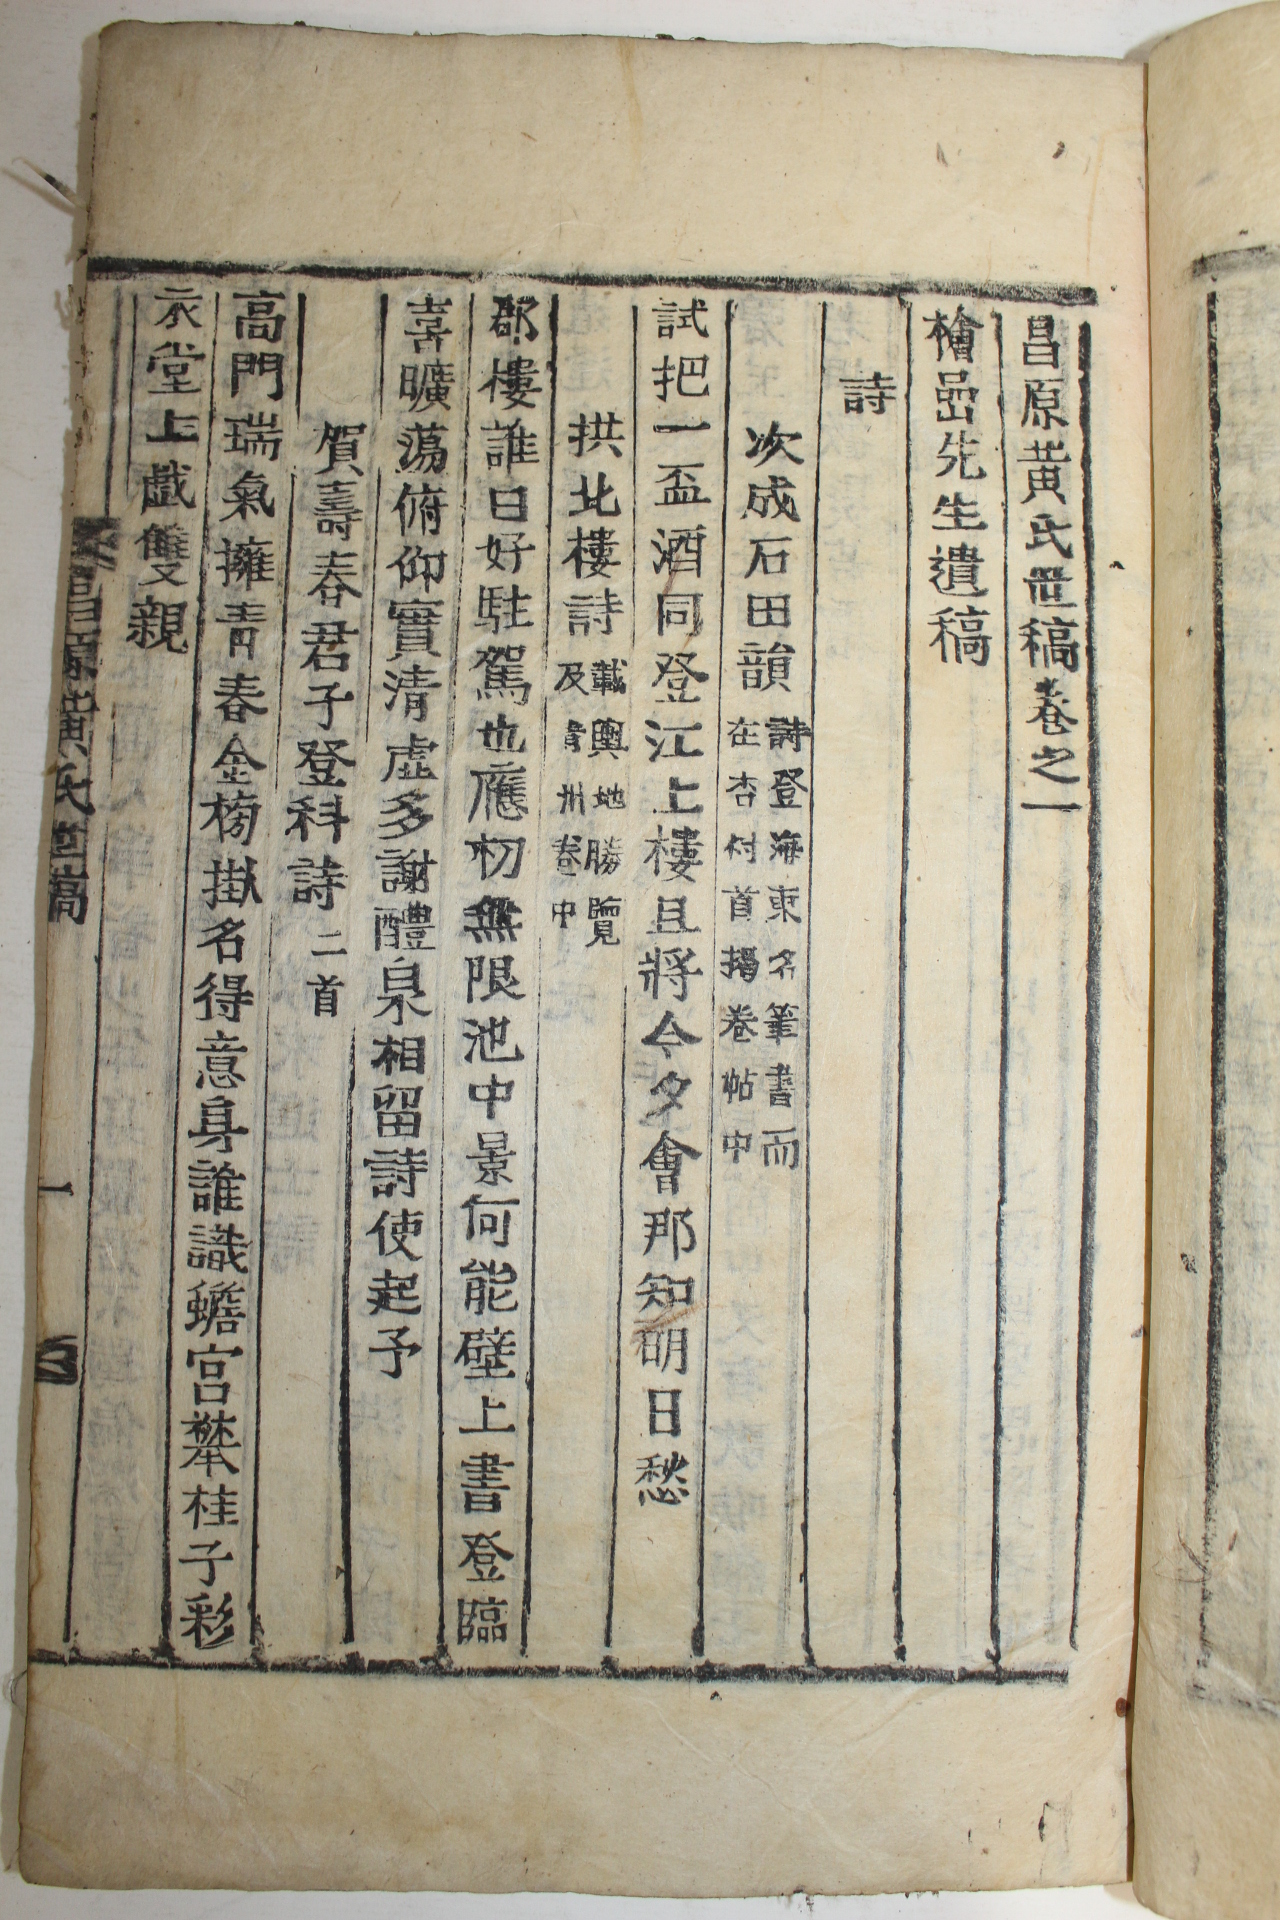 昌原黃氏世稿卷之一
檜嵒先生遺稿
詩
次成石田韻 詩登海東名筆書而
在杏村首揭卷帖中
試把一盃酒同登江上樓且將今夕會那知明日愁
拱北樓詩 載輿地勝覽
及青州卷中
郡樓誰曰好駐駕也應初無限池中景何能壁上書登臨
喜曠蕩俯仰實清虛多謝醴泉相留詩使起予
賀壽春君子登科詩 二首
高門瑞氣擁青春金榜掛名得意身誰識蟾宮攀桂子彩
衣堂上戱雙親
昌原黃氏世稿
一